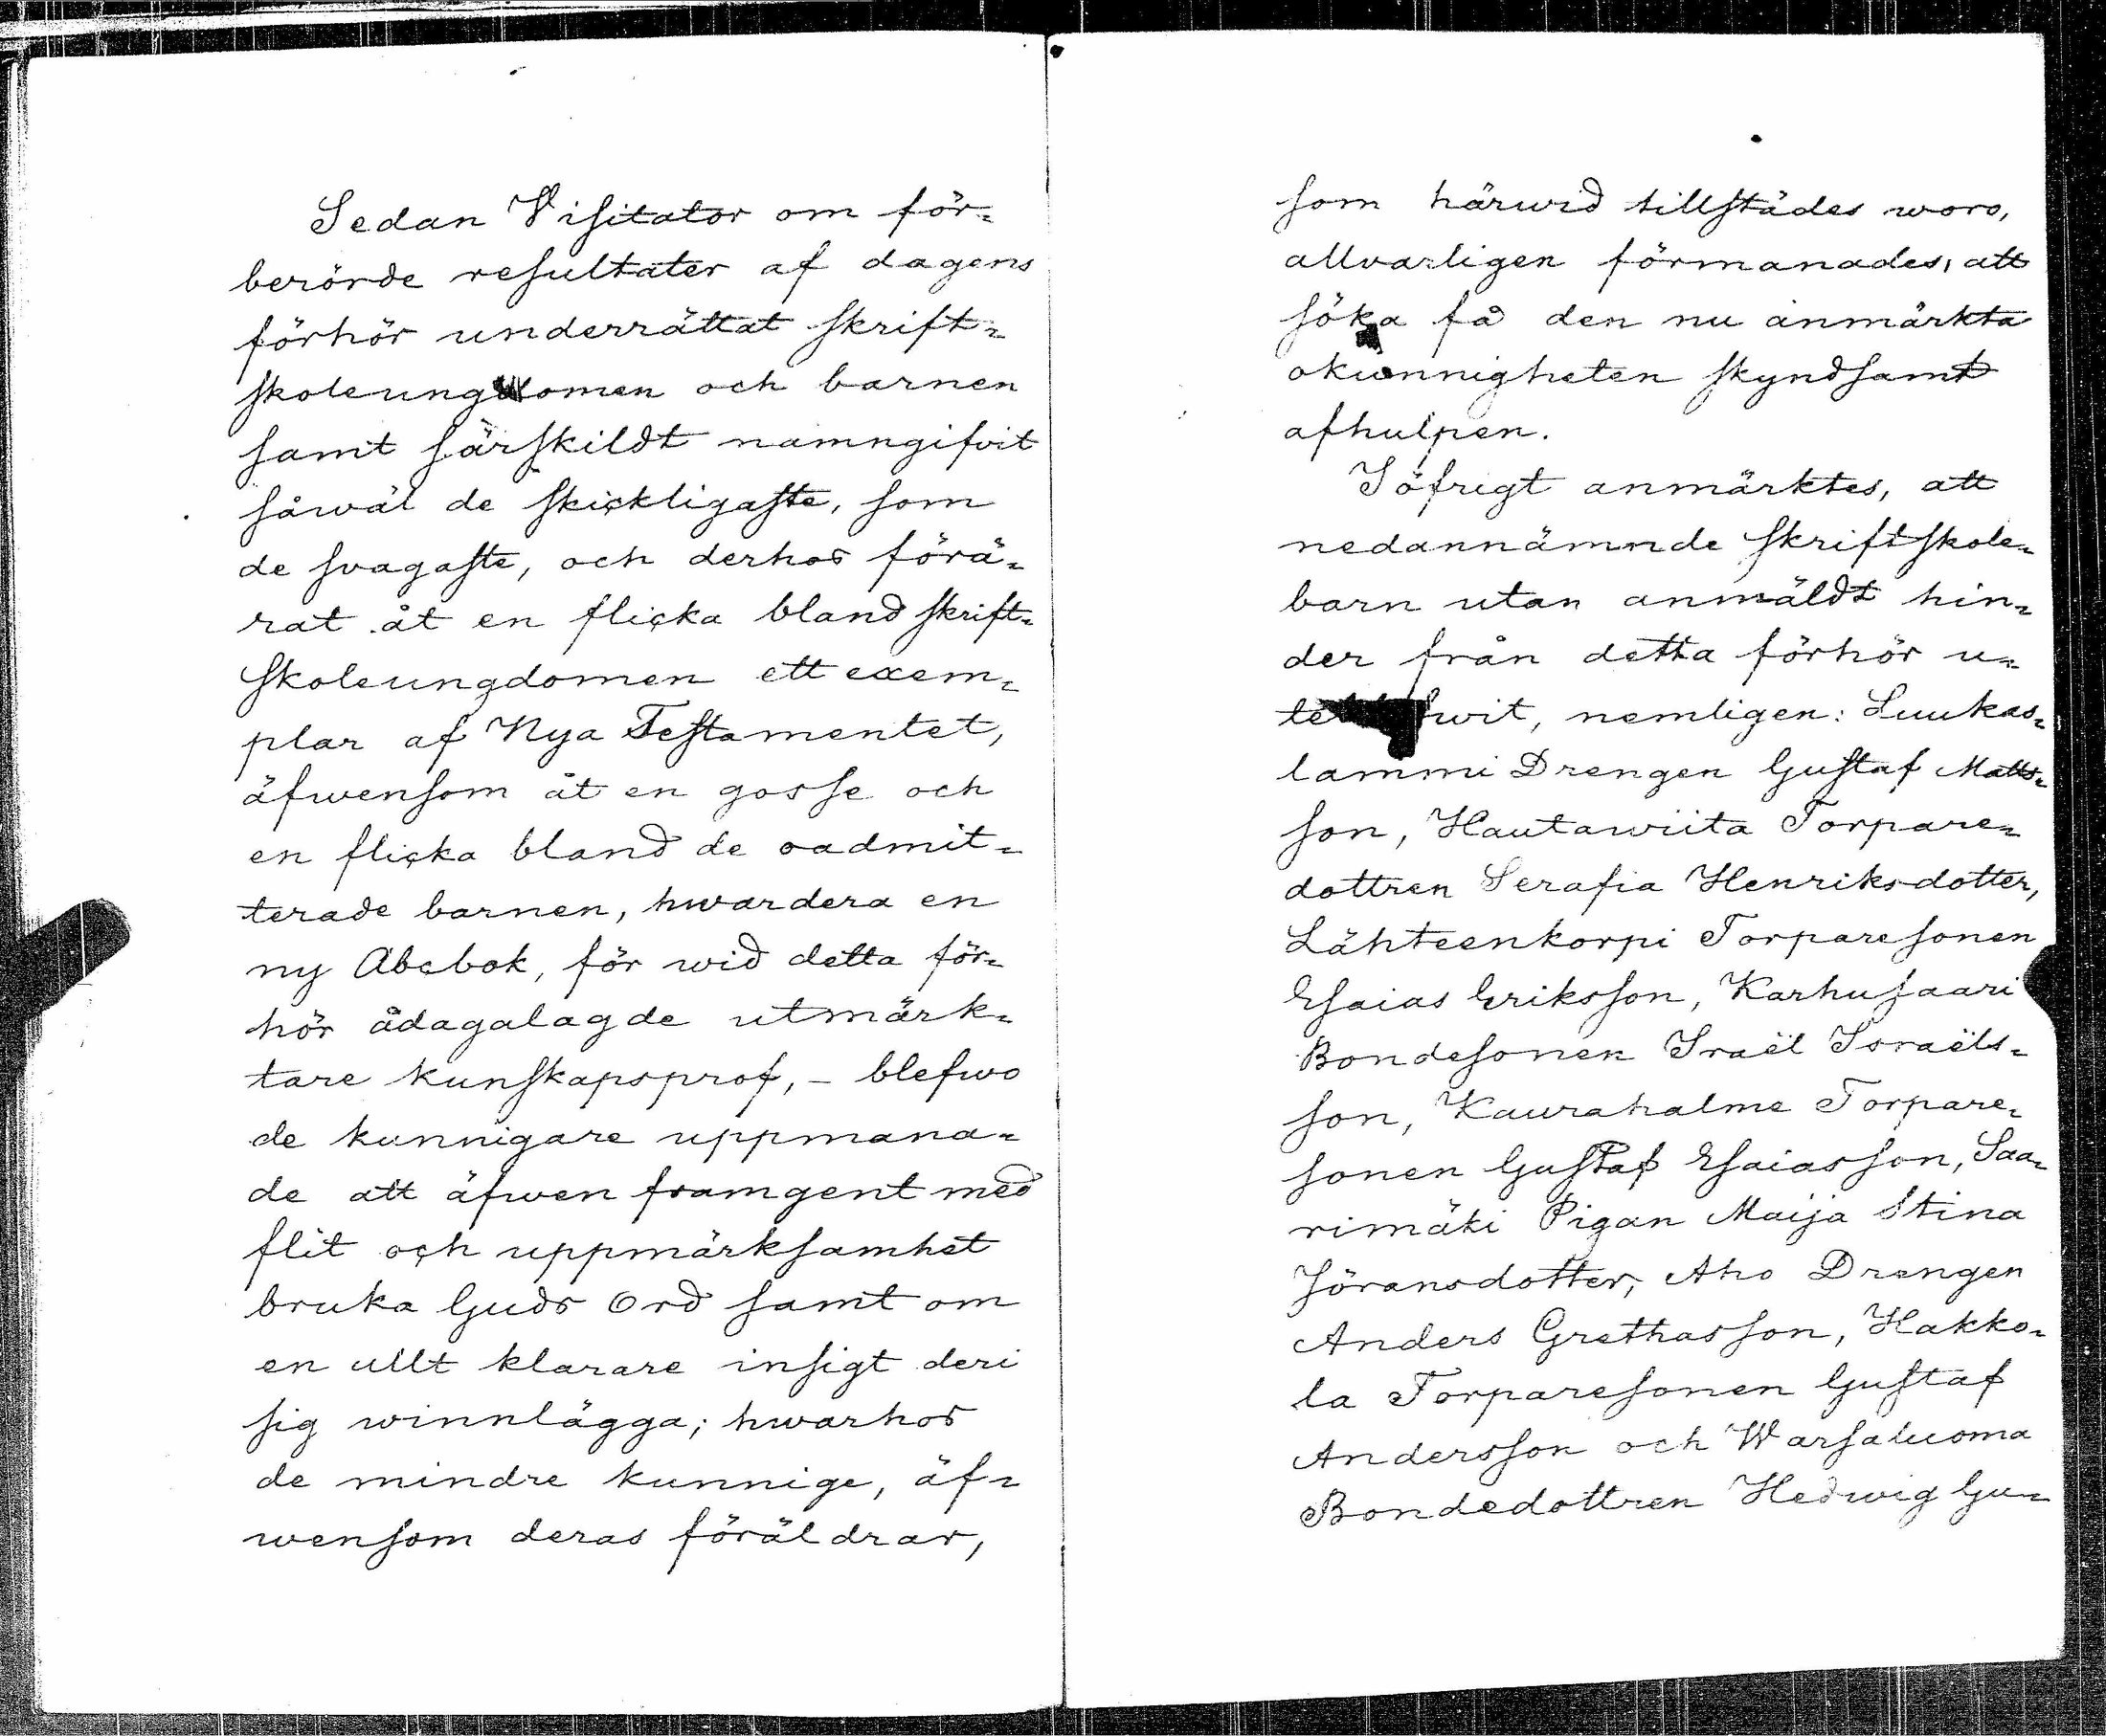 Sedan Visitator om för-
berörde resultater af dagens
förhör underrättat skrift-
skoleungdomen och barnen
samt särskildt namngifvit
såwäl de skickligaste, som
de svagaste, och derhos förä-
rat åt en flicka bland skrift-
skoleungdomen ett exem-
plar af Nya Testamentet,
äfwensom åt en gosse och
en flicka bland de oadmit-
terade barnen, hwardera en
ny Abcbok, för wid detta för-
hör ådagalagde utmärk-
tare kunskapsprof, - blefwo
de kunnigare uppmana-
de att äfwen framgent med
flit och uppmärksamhet
bruka Guds Ord samt om
en allt klarare insigt deri
sig winnlägga; hwarhos
de mindre kunnige, äf-
wensom deras föräldrar,
som härwid tillstädes woro,
allvarligen förmanades, att
söka få den nu anmärkta
okunnigheten skyndsamt
afhulpen.
Iöfrigt anmärktes, att
nedannämnde skriftskole-
barn utan anmäldt hin-
der från detta förhör u-
wit, nemligen: Luukas-
lammi Drengen Gustaf Matts-
son, Hautawiita Torpare-
dottren Serafia Henriksdotter,
Lähteenkorpi Torparesonen
Esaias Eriksson, Karhusaari
Bondesonen Israël Israëls-
son, Kaurahalme Torpare-
sonen Gustaf Esaiasson, Saa-
rimäki Pigan Maija Stina
Jöransdotter, Aho Drengen
Anders Grethasson, Hakko-
la Torparesonen Gustaf
Andersson och Warsaluoma
Bondedottren Hedwig Gu-